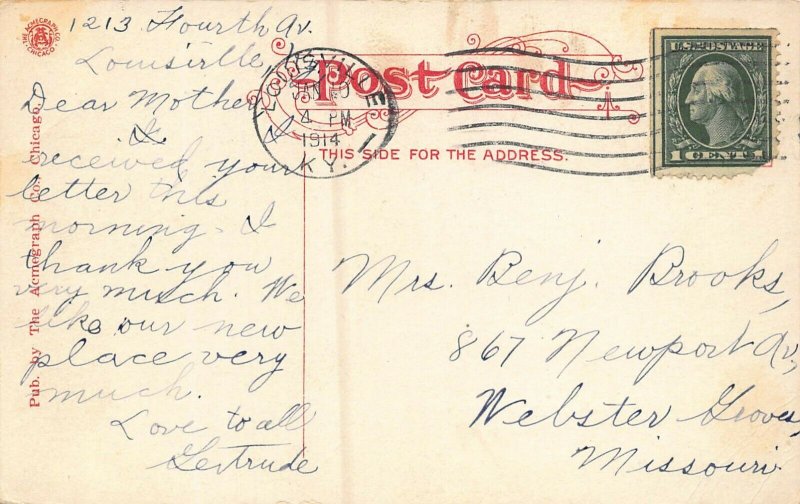 1213 Fourth Av.
Louisville
Dear Mother
I
received your
letter this
morning - I
thank you
very much. We
like our new
place very
much.
Love to all
Gertrude
Pub. by The Acmegraph Co., Chicago.
THE ACMEGRAPH CO.
CHICAGO
Post Card
THIS SIDE FOR THE ADDRESS.
LOUISVILLE
JAN
4 PM
1914
KY.
1
U.S. POSTAGE
1 CENT 1
Mrs. Benj. Brooks,
867 Newport Av,
Webster Groves,
Missouri